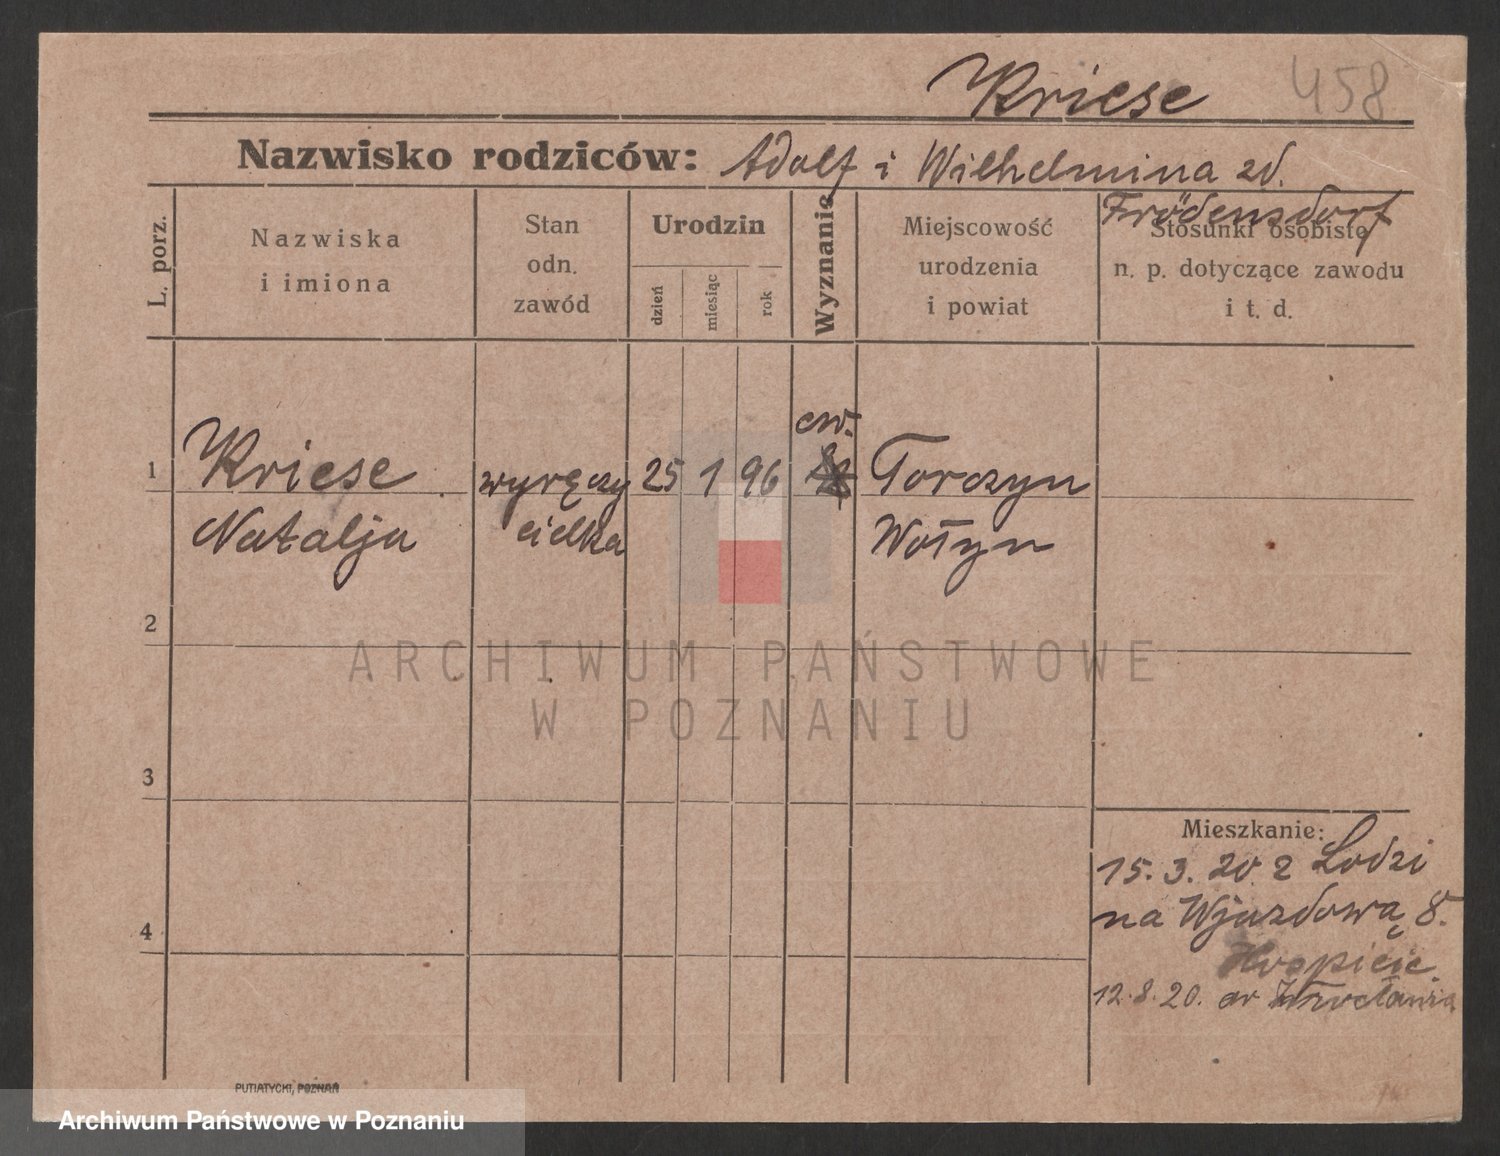 Kriese 458
Nazwisko rodziców: Adolf i Wilhelmina zd.
Frödensdorf
L. porz.
Nazwiska
i imiona
Stan
odn.
zawód
Urodzin
dzień
miesiąc
rok
Wyznanie
Miejscowość
urodzenia
i powiat
Stosunki osobiste
n. p. dotyczące zawodu
i t. d.
ew.
1 Kriese wyręczy 25 1 96 Torczyn
Natalja cielka Wołyn
2
ARCHIWUM PAŃSTWOWE
W POZNANIU
3
Mieszkanie:
15. 3. 20 z Lodzi
na Wjazdową 8.
4
Hospicie.
12. 8. 20.
PUTIATYCKI, POZNAŃ
Archiwum Państwowe w Poznaniu